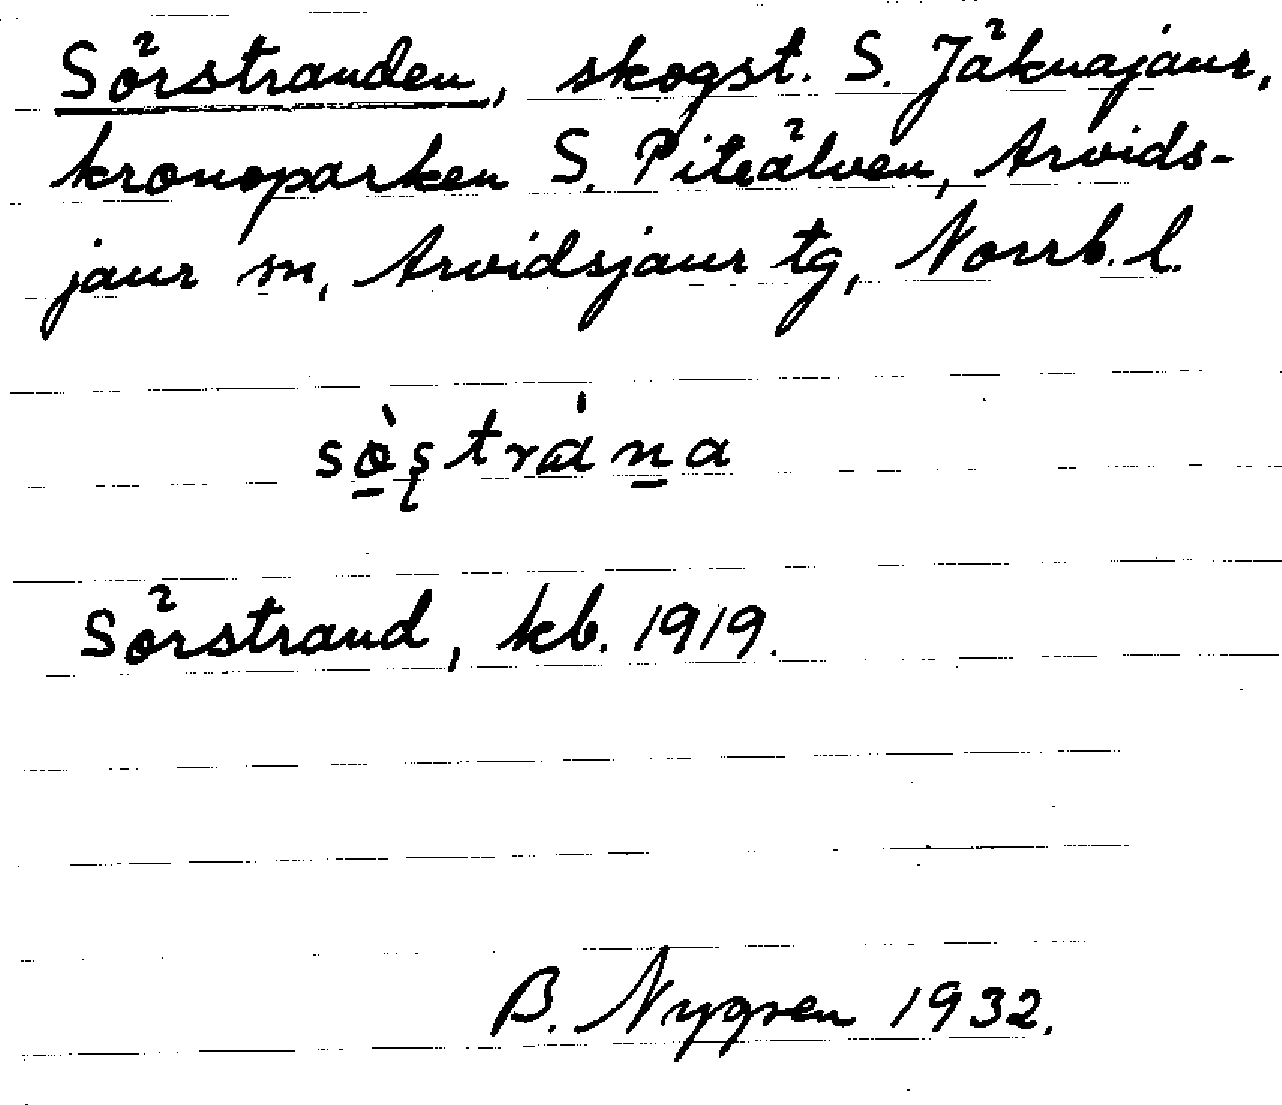 Sörstranden, skogst. S. Jäknajaur,
kronoparken S. Piteälven, Arvids-
jaur sn, Arvidsjaur tg, Norrb. l.
sö̀ʂtráṉa
Sörstrand, kb. 1919.
B. Nygren 1932.